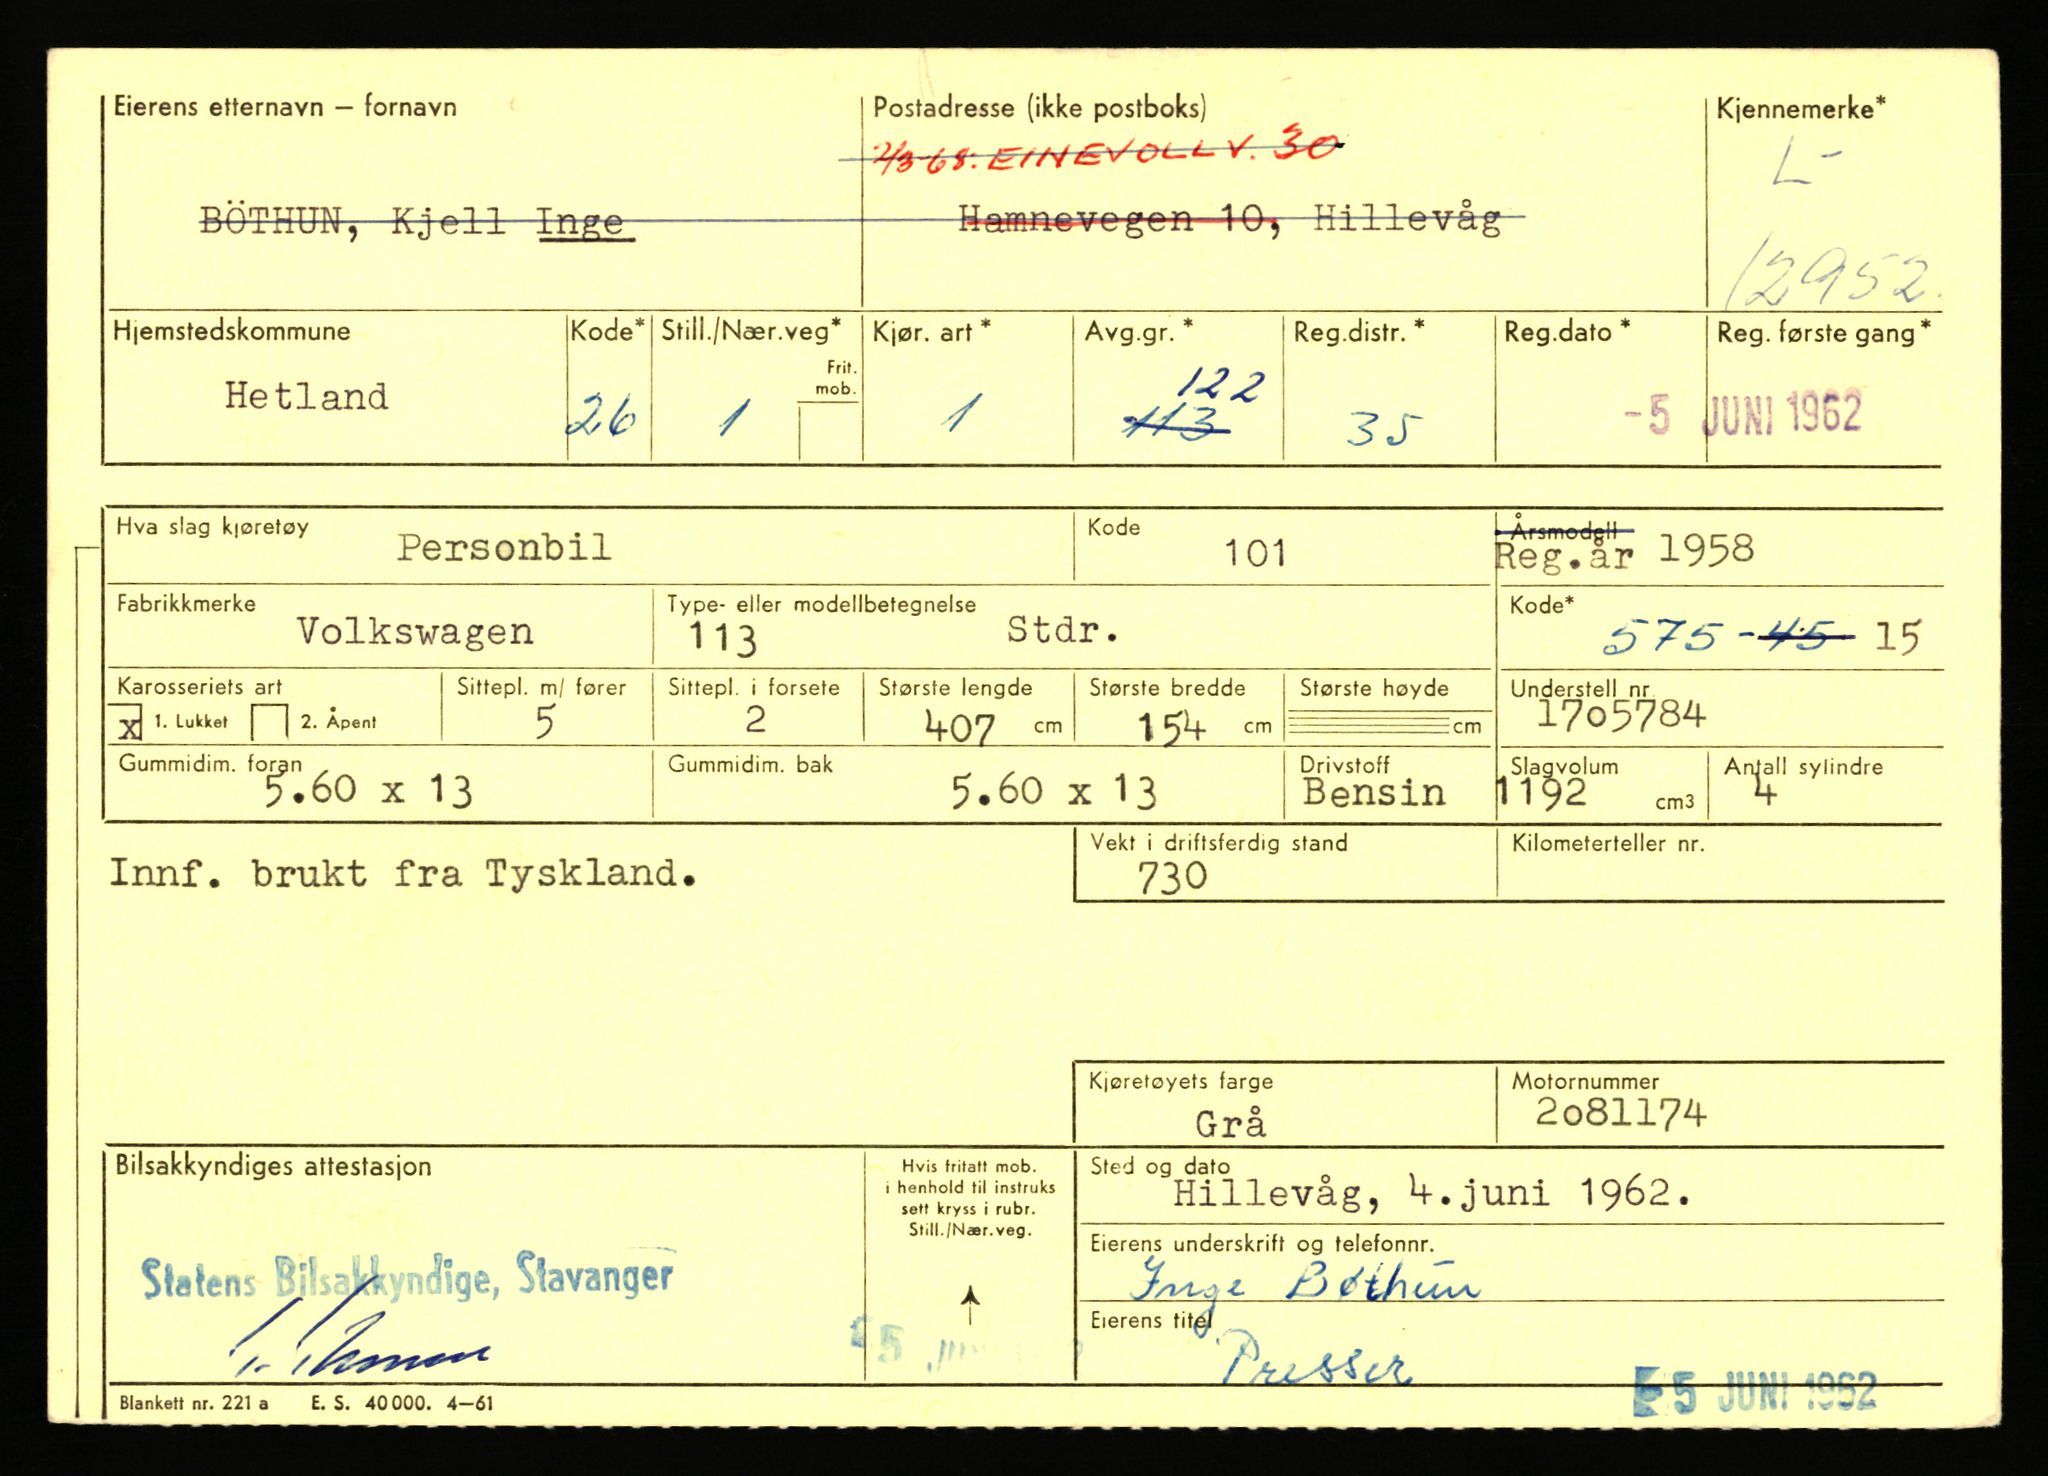 Eierens etternavn – fornavn
Postadresse (ikke postboks)
Kjennemerke*
2/3-68: EINEVOLLV. 30
L-
BÖTHUN, Kjell Inge
Hamnevegen 10, Hillevåg
12952.
Hjemstedskommune
Kode*
Still./Nær.veg*
Kjør. art*
Avg.gr.*
Reg.distr.*
Reg.dato*
Reg. første gang*
Frit.
mob.
Hetland
26
1
1
122
113
35
-5 JUNI 1962
Hva slag kjøretøy
Personbil
Kode
101
Årsmodell
Reg.år 1958
Fabrikkmerke
Volkswagen
Type- eller modellbetegnelse
113 Stdr.
Kode*
575-45 15
Karosseriets art
x 1. Lukket 2. Åpent
Sittepl. m/ fører
5
Sittepl. i forsete
2
Største lengde
407 cm
Største bredde
154 cm
Største høyde
cm
Understell nr
1705784
Gummidim. foran
5.60 x 13
Gummidim. bak
5.60 x 13
Drivstoff
Bensin
Slagvolum
1192 cm3
Antall sylindre
4
Innf. brukt fra Tyskland.
Vekt i driftsferdig stand
730
Kilometerteller nr.
Kjøretøyets farge
Grå
Motornummer
2081174
Bilsakkyndiges attestasjon
Statens Bilsakkyndige, Stavanger
Hvis fritatt mob.
i henhold til instruks
sett kryss i rubr.
Still./Nær.veg.
5
Sted og dato
Hillevåg, 4.juni 1962.
Eierens underskrift og telefonnr.
Inge Bøthun
Eierens titel
Presser
5 JUNI 1962
Blankett nr. 221 a E. S. 40 000. 4–61